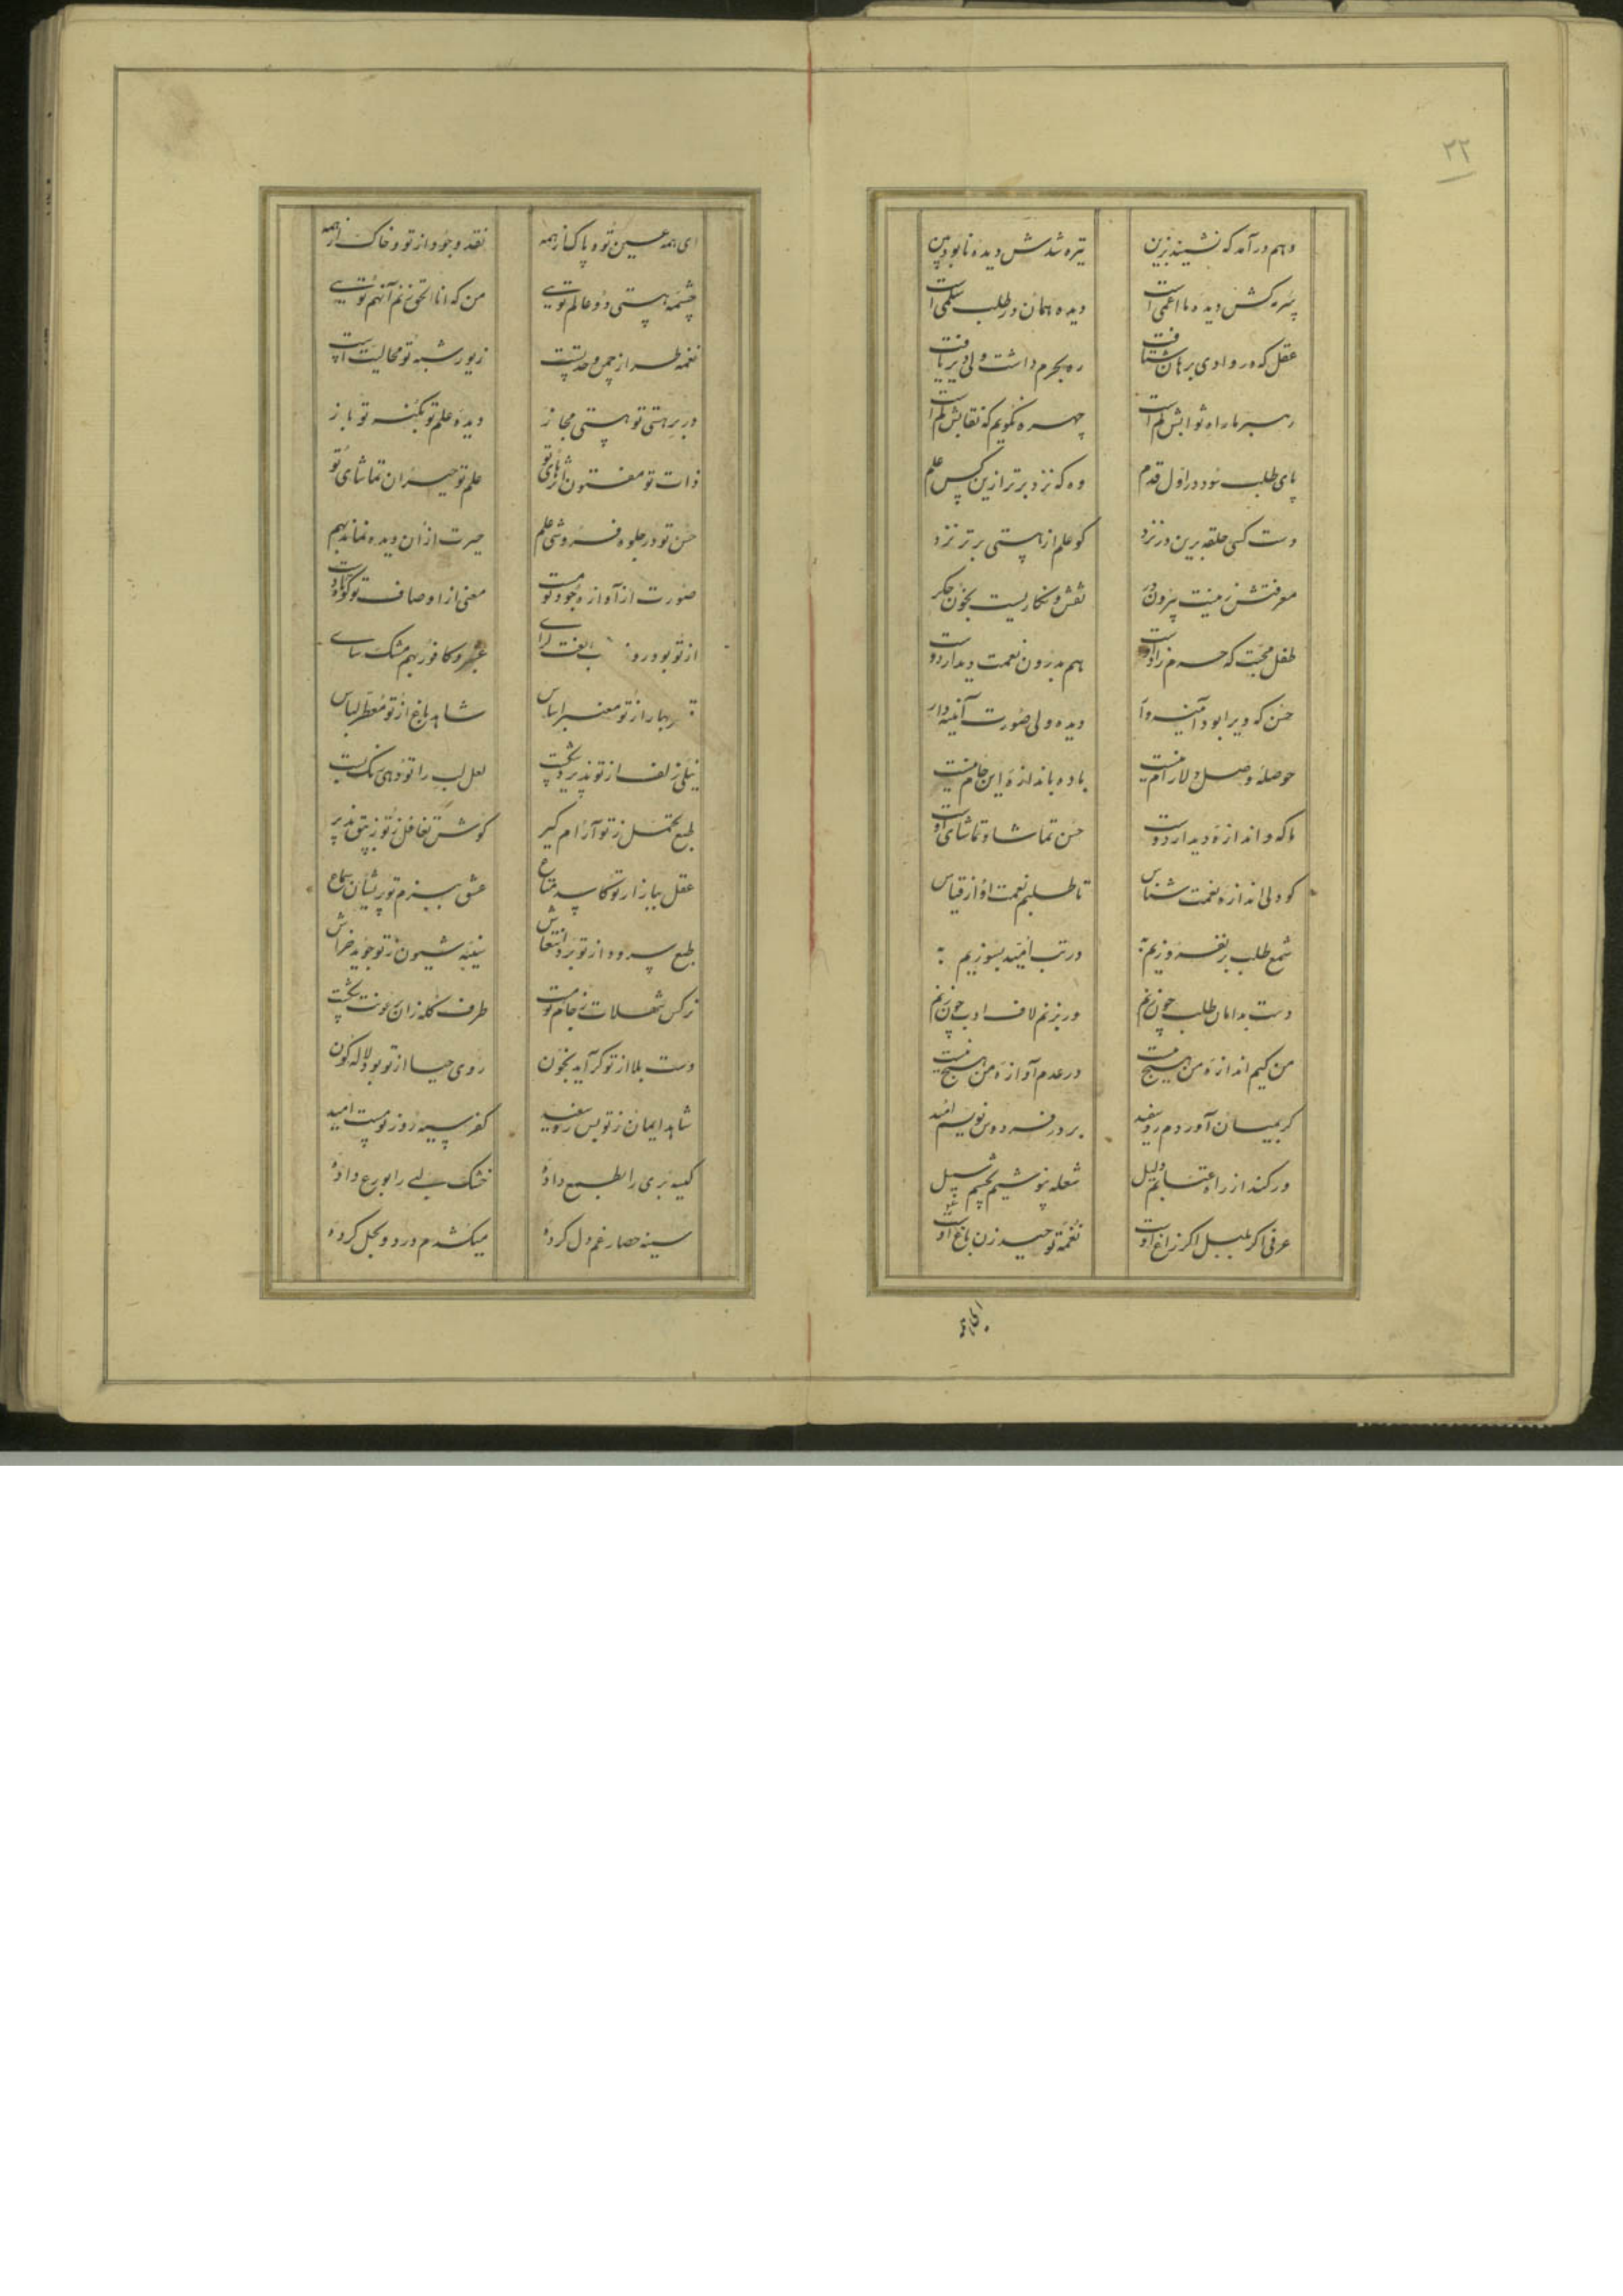 ۲۲
وهم در آمد که نشیند بزین تیره شدش دیده نابودبین
سرمه کش دیده ما اعمی است دیده همان در طلب سلمی است
عقل که در وادی برهان شتافت ره بحرم داشت ولی دیر یافت
رهبر ما راه ثوابش کم است چهره نگویم که نقابش کم است
پای طلب سود در اول قدم وه که نزد برتر ازین کس علم
دست کسی حلقه برین در نزد کو علم از هستی برتر نزد
معرفتش زمنیت بیرون در نقش و نگاریست بخون جگر
طفل محبت که حرم زاد اوست هم بدرون نعمت دیدار دوست
حسن که ویرا بود آئینه وار دیده ولی صورت آئینه دار
حوصله وصل دلارام نیست باده باندازه این جام نیست
ما که و اندازه دیدار دوست حسن تماشا و تماشای اوست
کو دلی اندازه نعمت شناس تا طلبیم نعمت او از قیاس
شمع طلب بر نفروزیم به در تب امید بسوزیم به
دست بدامان طلب چون زنم ور نزنم لاف ادب چون زنم
من کیم اندازه من هیچ نیست در عدم آوازه من هیچ نیست
کر بمیان آوردم رو سفید بر در فردوس نویسم امید
ور کند از راه عتابم دلیل شعله بنوشیم بچشم سبیل
عرفی اگر بلبل اگر زاغ اوست نغمه توحید زن باغ اوست
ای همه
ای همه عین تو و پاک از همه نقد وجود از تو و خاک از همه
چشمه هستی دو عالم تویی من که انا الحق زنم آنهم تویی
نغمه طراز چمن وحدتست زیور شبه تو محالیت است
در بر هستی تو هستی مجاز دیده علم تو بکنه تو باز
ذات تو مفتون اثرهای تو علم تو حیران تماشای تو
حسن تو در جلوه فروشی علم حیرت از آن دیده نماند بهم
صورت از آوازه جود تو مست معنی از اوصاف تو کوتاه دست
از تو بود روز شب الفت گرای عنبر و کافور بهم مشک سای
بهار از تو معنبر اساس شاهد باغ از تو معطر لباس
نیلی زلف از تو پذیرد شکست لعل لب را تو دهی نک لبست
طبع تحمل ز تو آرام گیر گوش تغافل ز تو زیبق پذیر
عقل ببازار تو کاسد متاع عشق ببزم تو پریشان سماع
طبع سرود از تو برد انتعاش نینه شیون ز تو جوید خراش
نرگس شهلات ز جام تو مست طرف کله زان رعونت شکست
دست بلا از تو گر آید بخون روی حیا از تو بود لاله گون
شاهد ایمان ز تو بس رو سفید کفر سیه روز تو مست امید
کیسه بری را بطمع داده خشک لبی را بورع داده
سینه حصار غم دل کرده میکشدم درد و بحل کرده